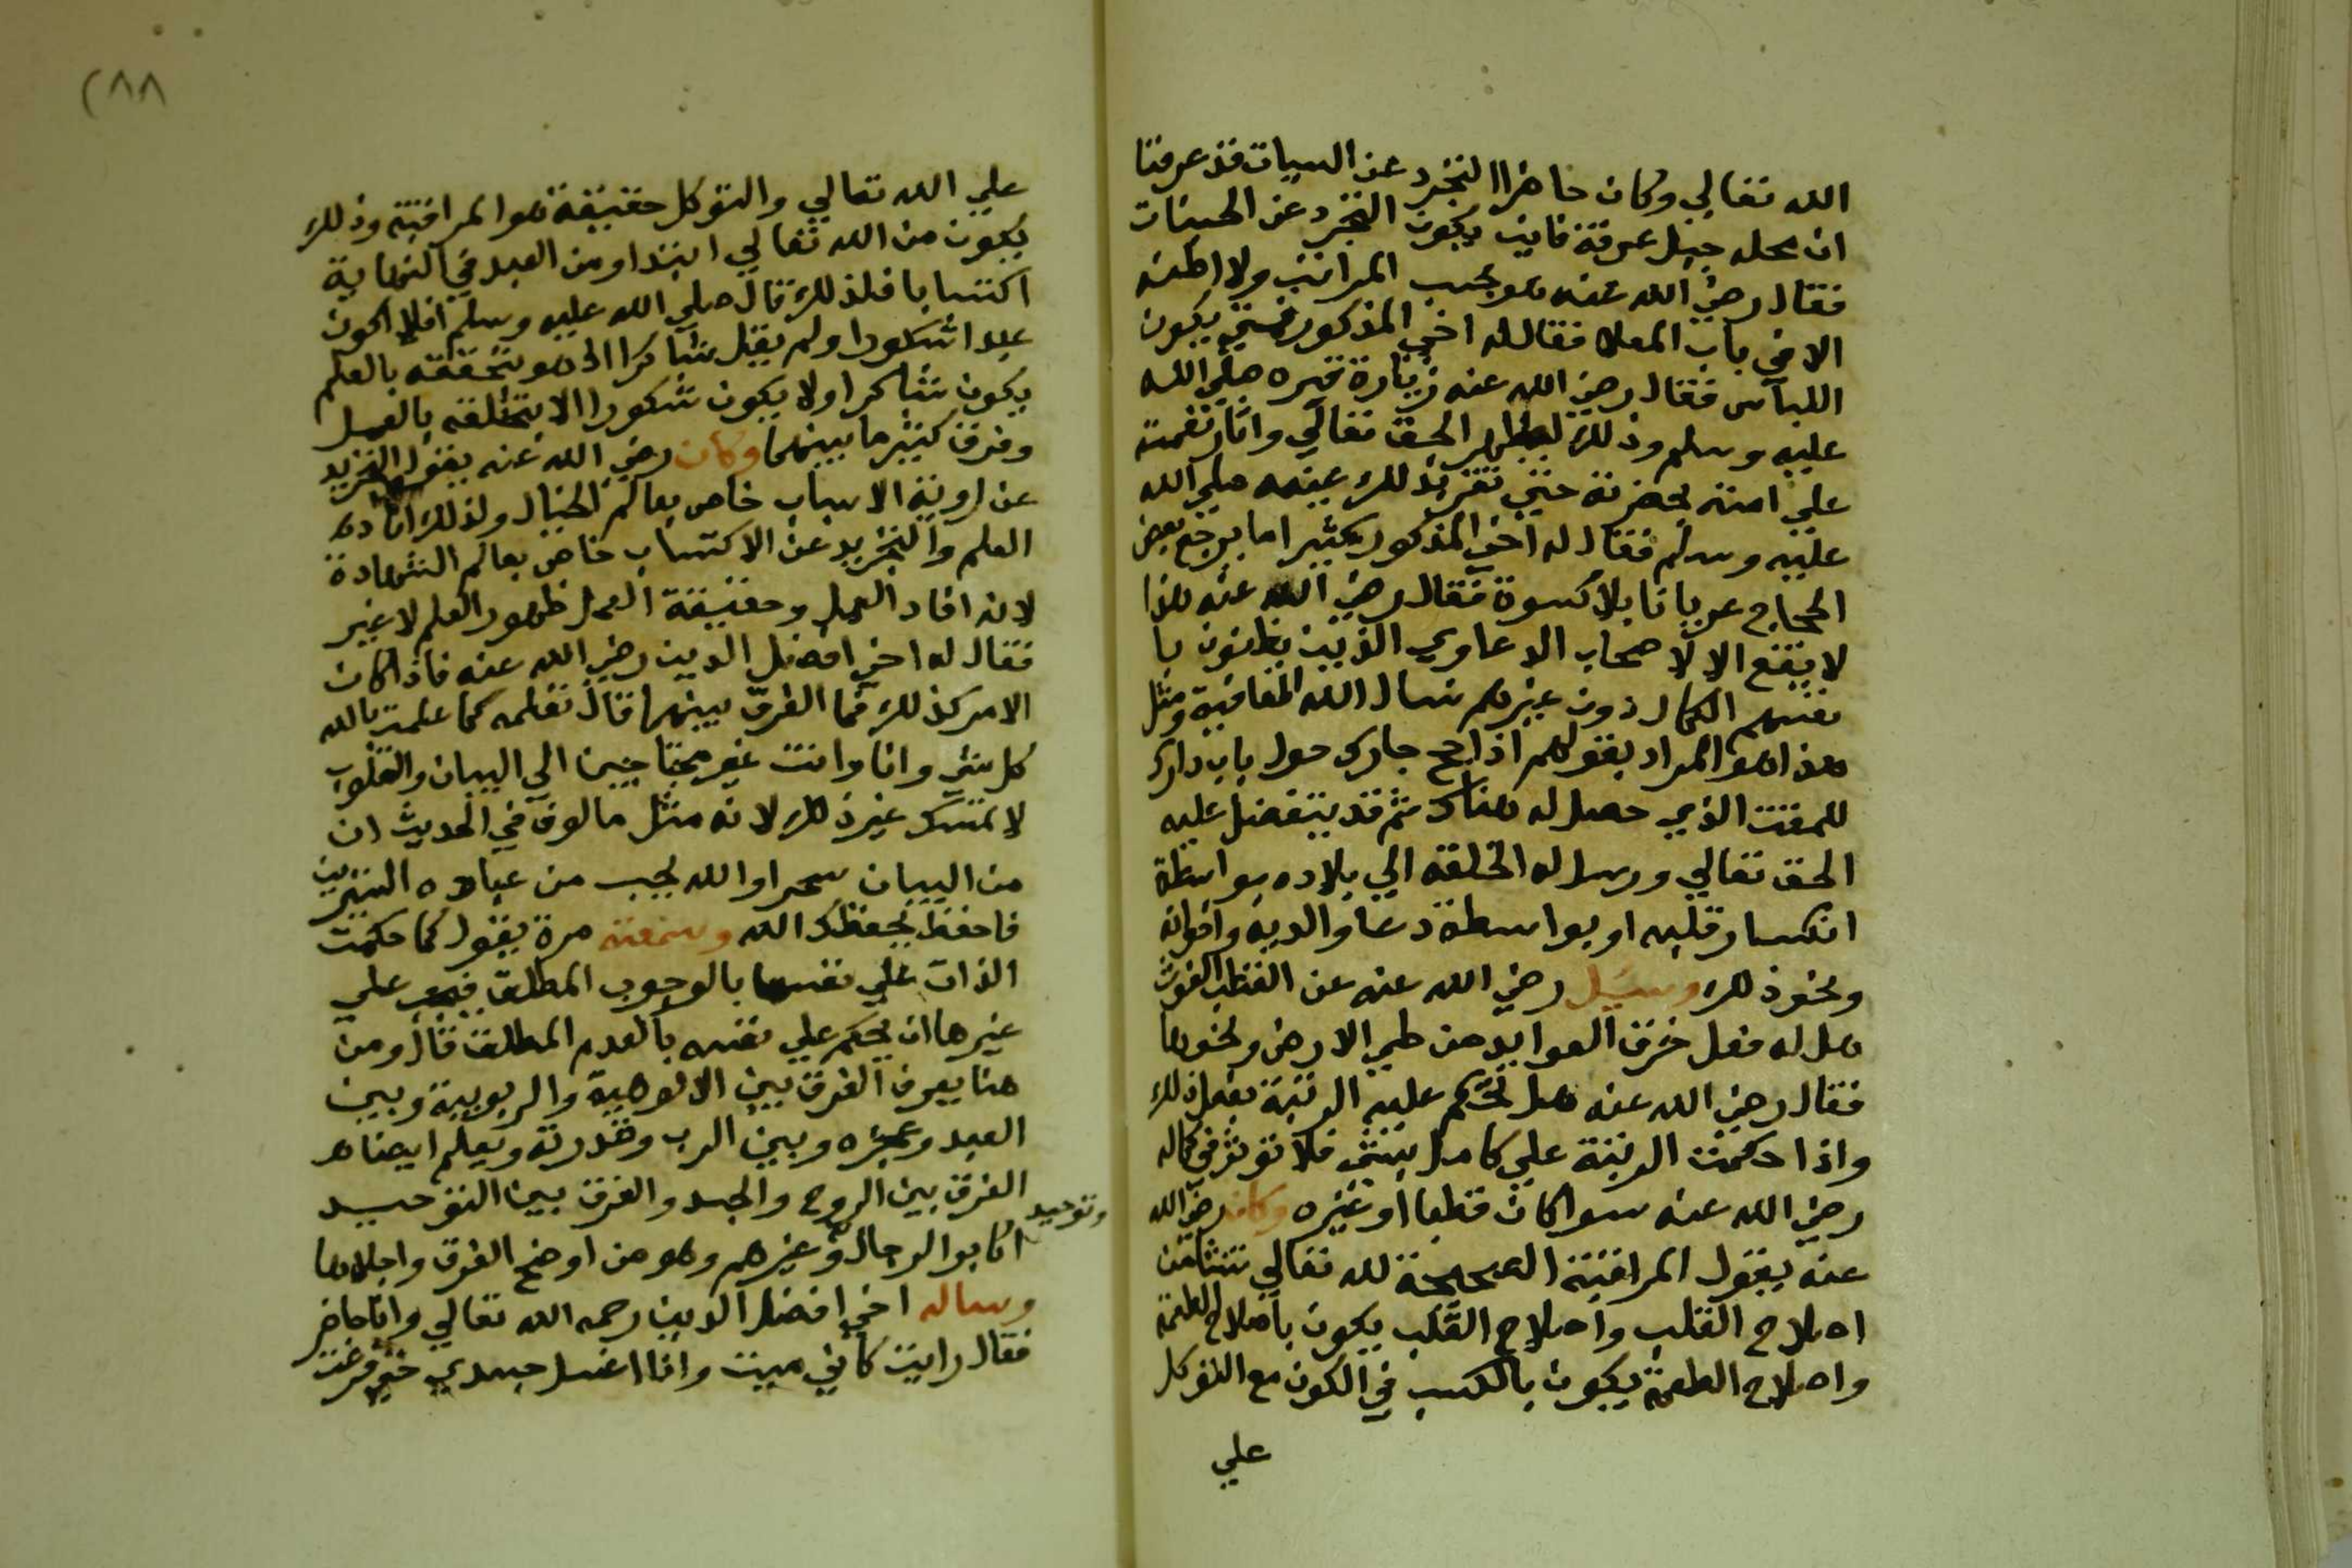 الله تعالي وكان حاضرا التجرد عن السيات قد عرفنا
ان محله جبل عرفة فاين يكون التجرد عن الحسنات
فقال رضي الله عنه هو بحسب المراتب ولا اظنه
الا في باب المعلا فقال له اخي المذكور فمتي يكون
اللباس فقال رضي الله عنه زيارة قبره صلي الله
عليه وسلم وذلك ليظهر الحق تعالي واثار نعمته
علي امته بحضرته حتي تقر بذلك عينه صلي الله
عليه وسلم فقال له اخي المذكور كثيرا ما يرجع بعض
الحجاج عريانا بلا كسوة فقال رضي الله عنه هذا
لا يقع الا لاصحاب الدعاوي الذين يظنون با
نفسهم الكمال دون غيرهم نسال الله العافية ومثل
هذا هو المراد بقولهم اذا حج جارك حول باب دارك
للمقت الذي حصل له هناك ثم قد يتفضل عليه
الحق تعالي ورسال له الخلعة الي بلاده بواسطة
انكسار قلبه او بواسطة دعا والديه واخوانه
ونحو ذلك وسيل رضي الله عنه عن القطب الغوث
هل له فعل خرق العوايد من طي الارض ونحوها
فقال رضي الله عنه هل تحكم عليه الرتبة بفعل ذلك
واذا حكمت الرتبة علي كامل بشي فلا توثر في كماله
رضي الله عنه سوا كان قطبا او غيره وكان رضي الله
عنه يقول المراقبة الصحيحة لله تعالي تنشا من
اصلاح القلب واصلاح القلب يكون باصلاح الطعمة
واصلاح الطعمة يكون بالكسب في الكون مع التوكل
علي
(٨٨
علي الله تعالي والتوكل حقيقة هو المراقبة وذلك
يكون من الله تعالي ابتدا ومن العبد في النهاية
اكتسابا فلذلك قال صلي الله عليه وسلم افلا اكون
عبدا شكورا ولم يقل شاكرا اذ هو بتحققه بالعلم
يكون شاكرا ولا يكون شكورا الا بتخلقه بالعمل
وفرق كثير ما بينهما وكان رضي الله عنه يقول التجريد
عن روية الاسباب خاص بعالم الخيال ولذلك افاده
العلم والتجريد عن الاكتساب خاص بعالم الشهادة
لانه افاد العمل وحقيقة العمل ظهور العلم لا غير
فقال له اخي افضل الدين رضي الله عنه فاذا كان
الامر كذلك فما الفرق بينهما قال تعلمه كما علمت بالله
كل شي وانا وانت غير محتاجين الي البيان والقلوب
لا تمسك غير ذلك لانه مثل مالوف في الحديث ان
من البيان سحرا والله يحب من عباده الستيرين
فاحفظ يحفظك الله وسمعته مرة يقول كما حكمت
الذات علي نفسها بالوجوب المطلق فيجب علي
غيرها ان يحكم علي نفسه بالعدم المطلق قال ومن
هنا يعرف الفرق بين الالوهية والربوبية وبين
العبد وعجزه وبين الرب وقدرته ويعلم ايضا هـ
الفرق بين الروح والجسد والفرق بين التوحيد
وتوحيد
اكابر الرجال وغيرهم وهو من اوضح الفرق واجلاها
وساله اخي افضل الدين رحمه الله تعالي وانا حاضر
فقال رايت كاني ميت وانا اغسل جسدي حتي فرغت